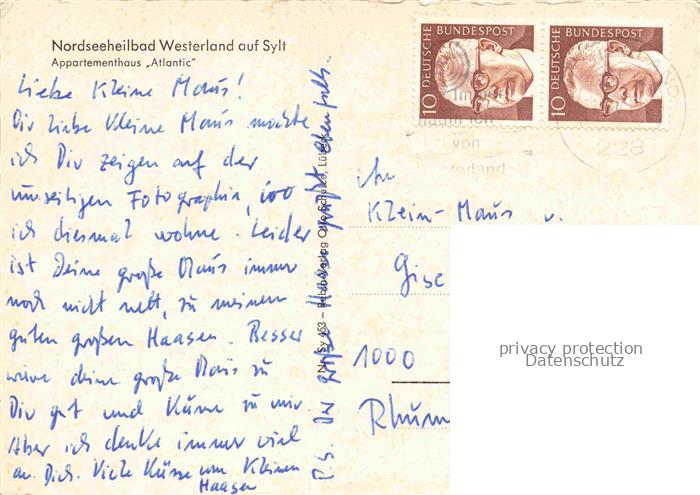 Nordseeheilbad Westerland auf Sylt
Appartementhaus „Atlantic"
Liebe Kleine Maus!
Dir liebe Kleine Maus möchte
ich Dir zeigen auf der
umseitigen Fotographie, wo
ich diesmal wohne. Leider
ist Deine große Maus immer
noch nicht nett, zu meinem
guten großen Haasen. Besser
wäre deine große Maus zu
Dir gut und käme zu mir.
Aber ich denke immer viel
an Dich. Viele Küsse vom Kleinen
Haasen
P.S. Der große Haase grüßt ebenfalls.
Nr. Sy 453 – Verlag Otto Schulze, Lübeck
DEUTSCHE BUNDESPOST
10
DEUTSCHE BUNDESPOST
10
von
2228
Klein-Maus u.
Gise
1000
Rhum
privacy protection
Datenschutz